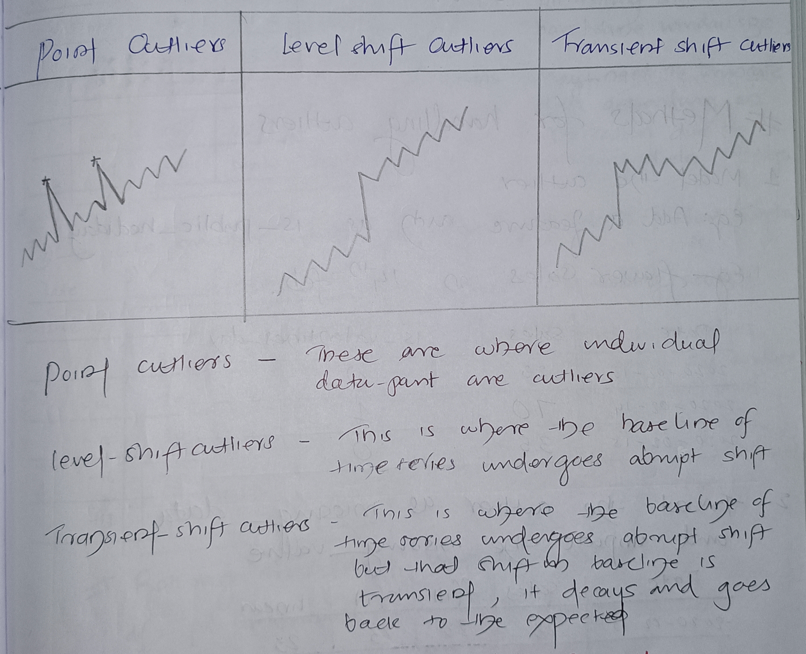 Point Outliers
Level shift outliers
Transient shift outliers
Point outliers - These are where individual
data-point are outliers
level-shift outliers - This is where the baseline of
time series undergoes abrupt shift
Transient-shift outliers - This is where the baseline of
time series undergoes abrupt shift
but that shift in baseline is
transient, it decays and goes
back to the expected